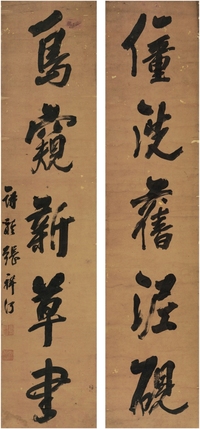 僮洗舊泥硯
鳥窺新草書
詩舲張祥河